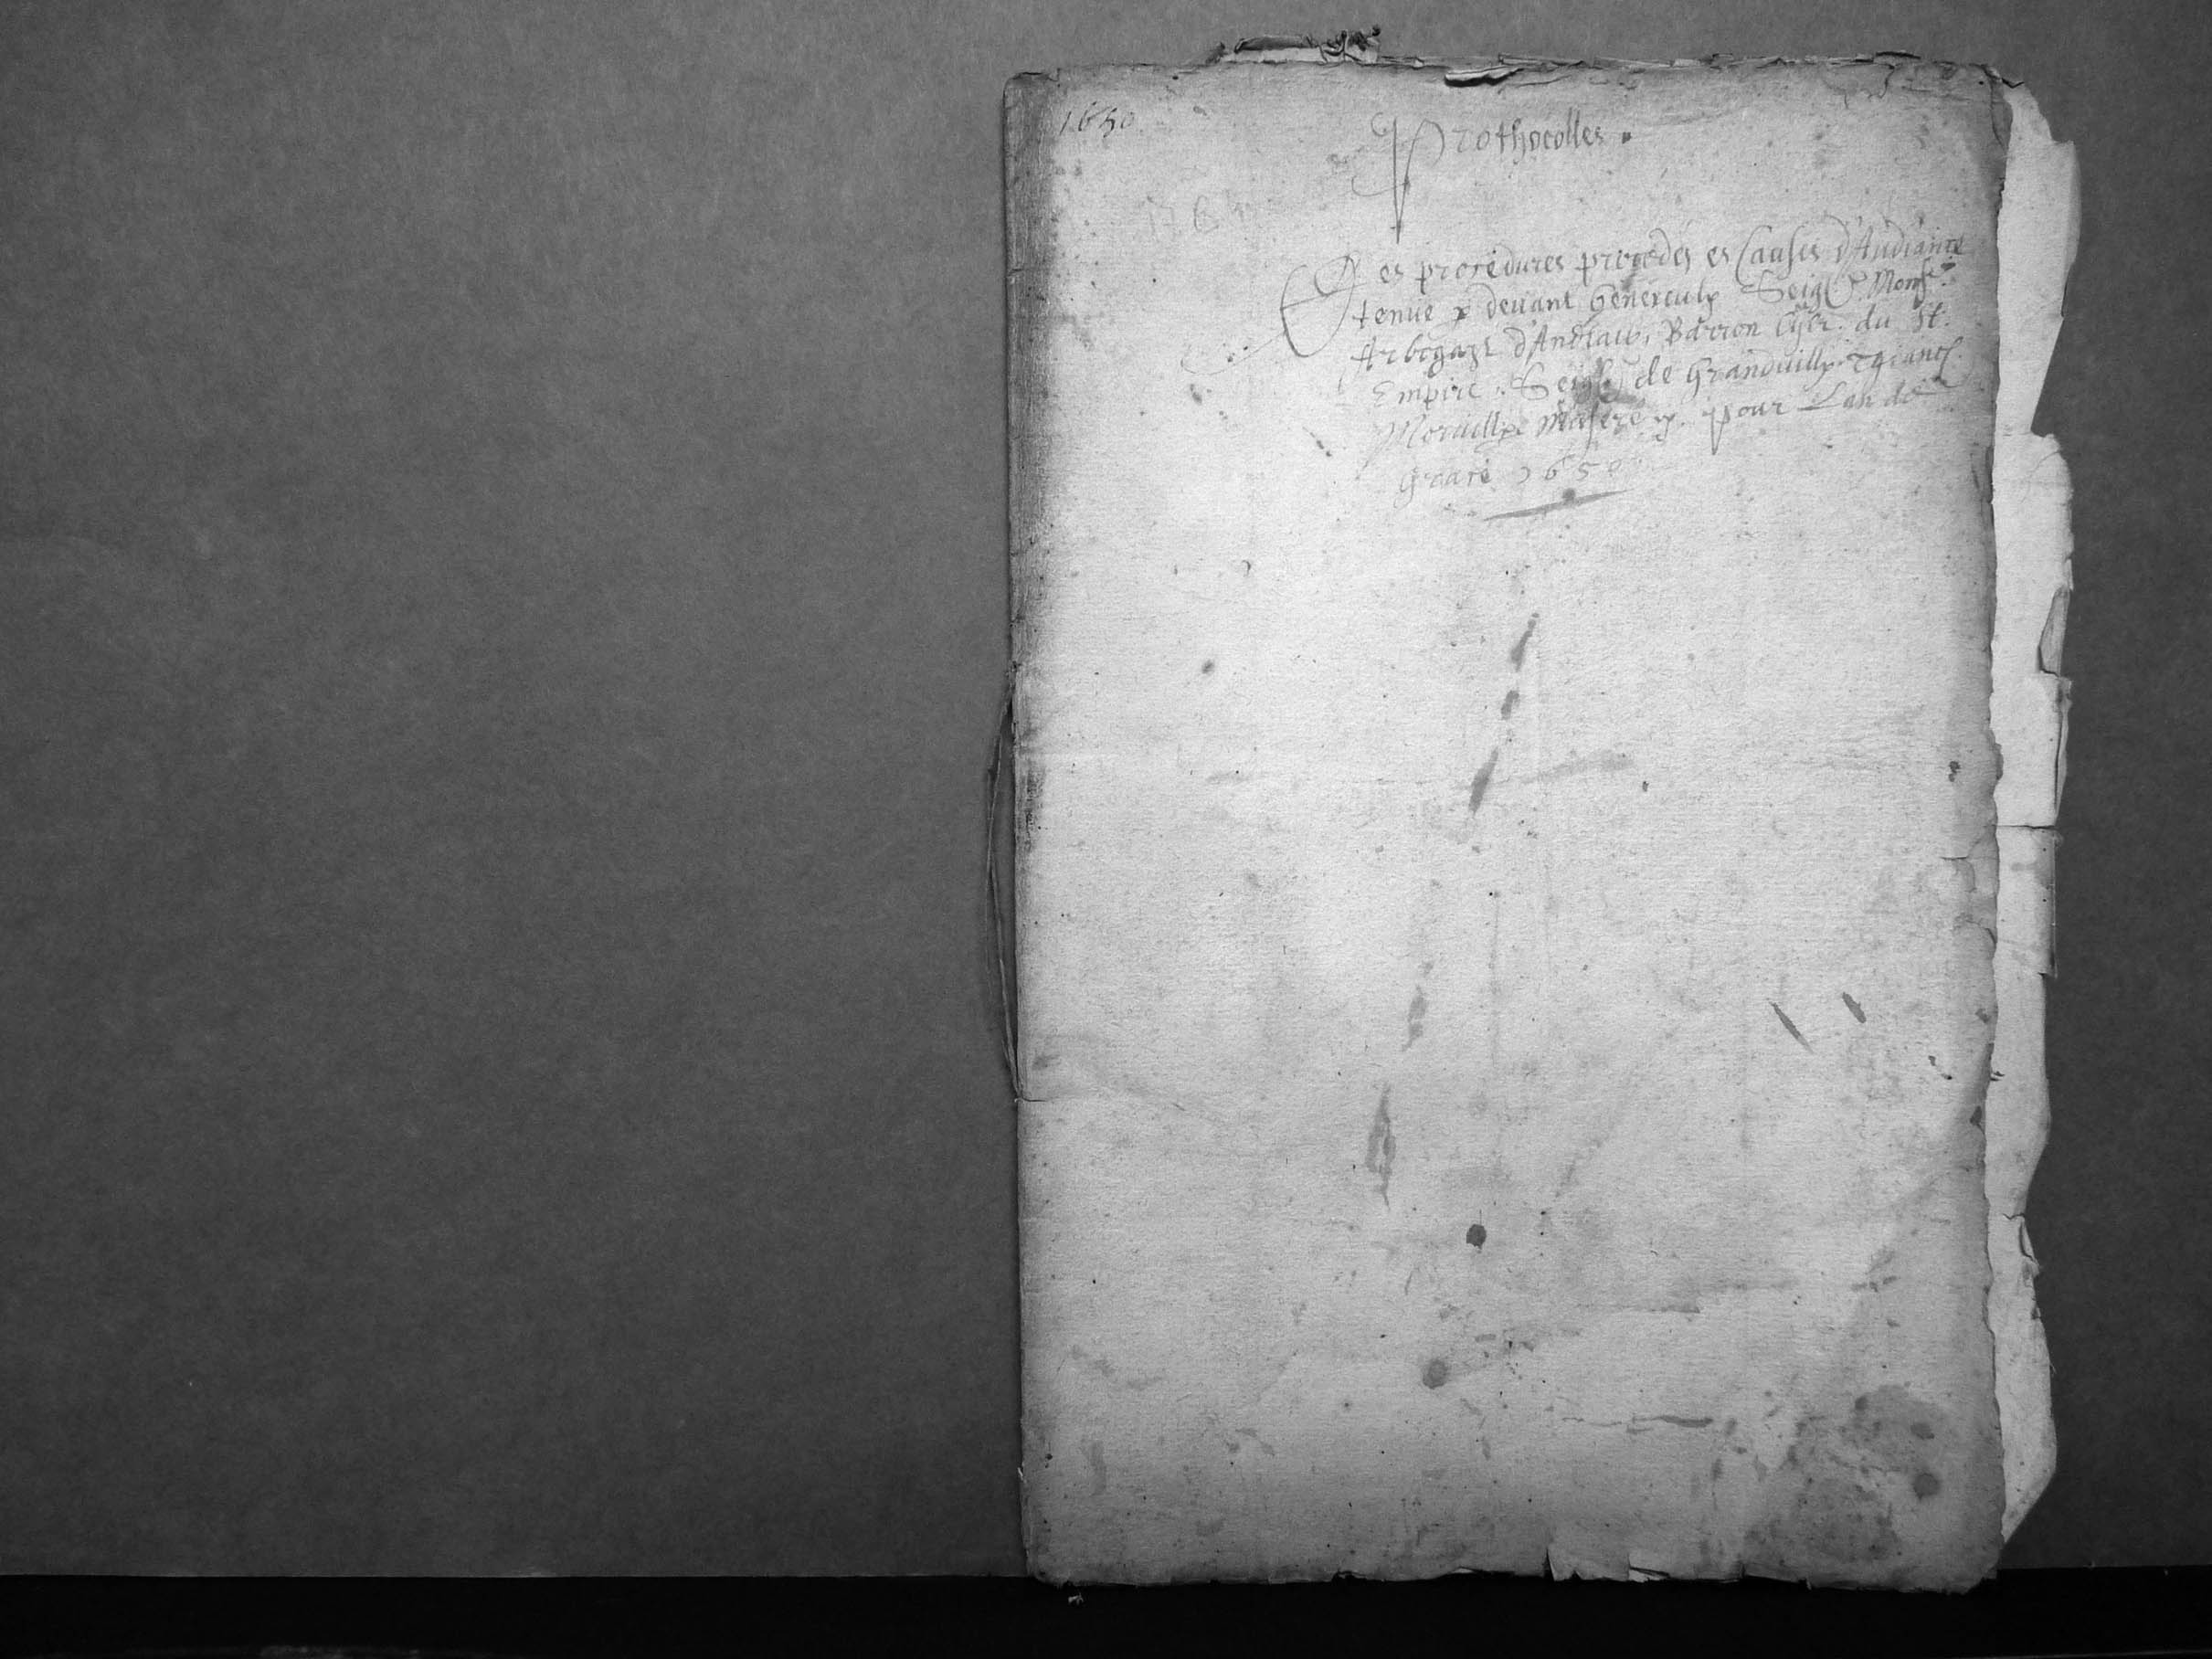 1650
Prothocolles.
Des procedures procedés es Causes d'Audiance
tenue p devant Genereulx Seigr Monsr
Arbogast d'Andlaw, Barron Chlr. du St.
Empire, Seigr de Granduillr
Moruillr pour Lan de
Grace 1650